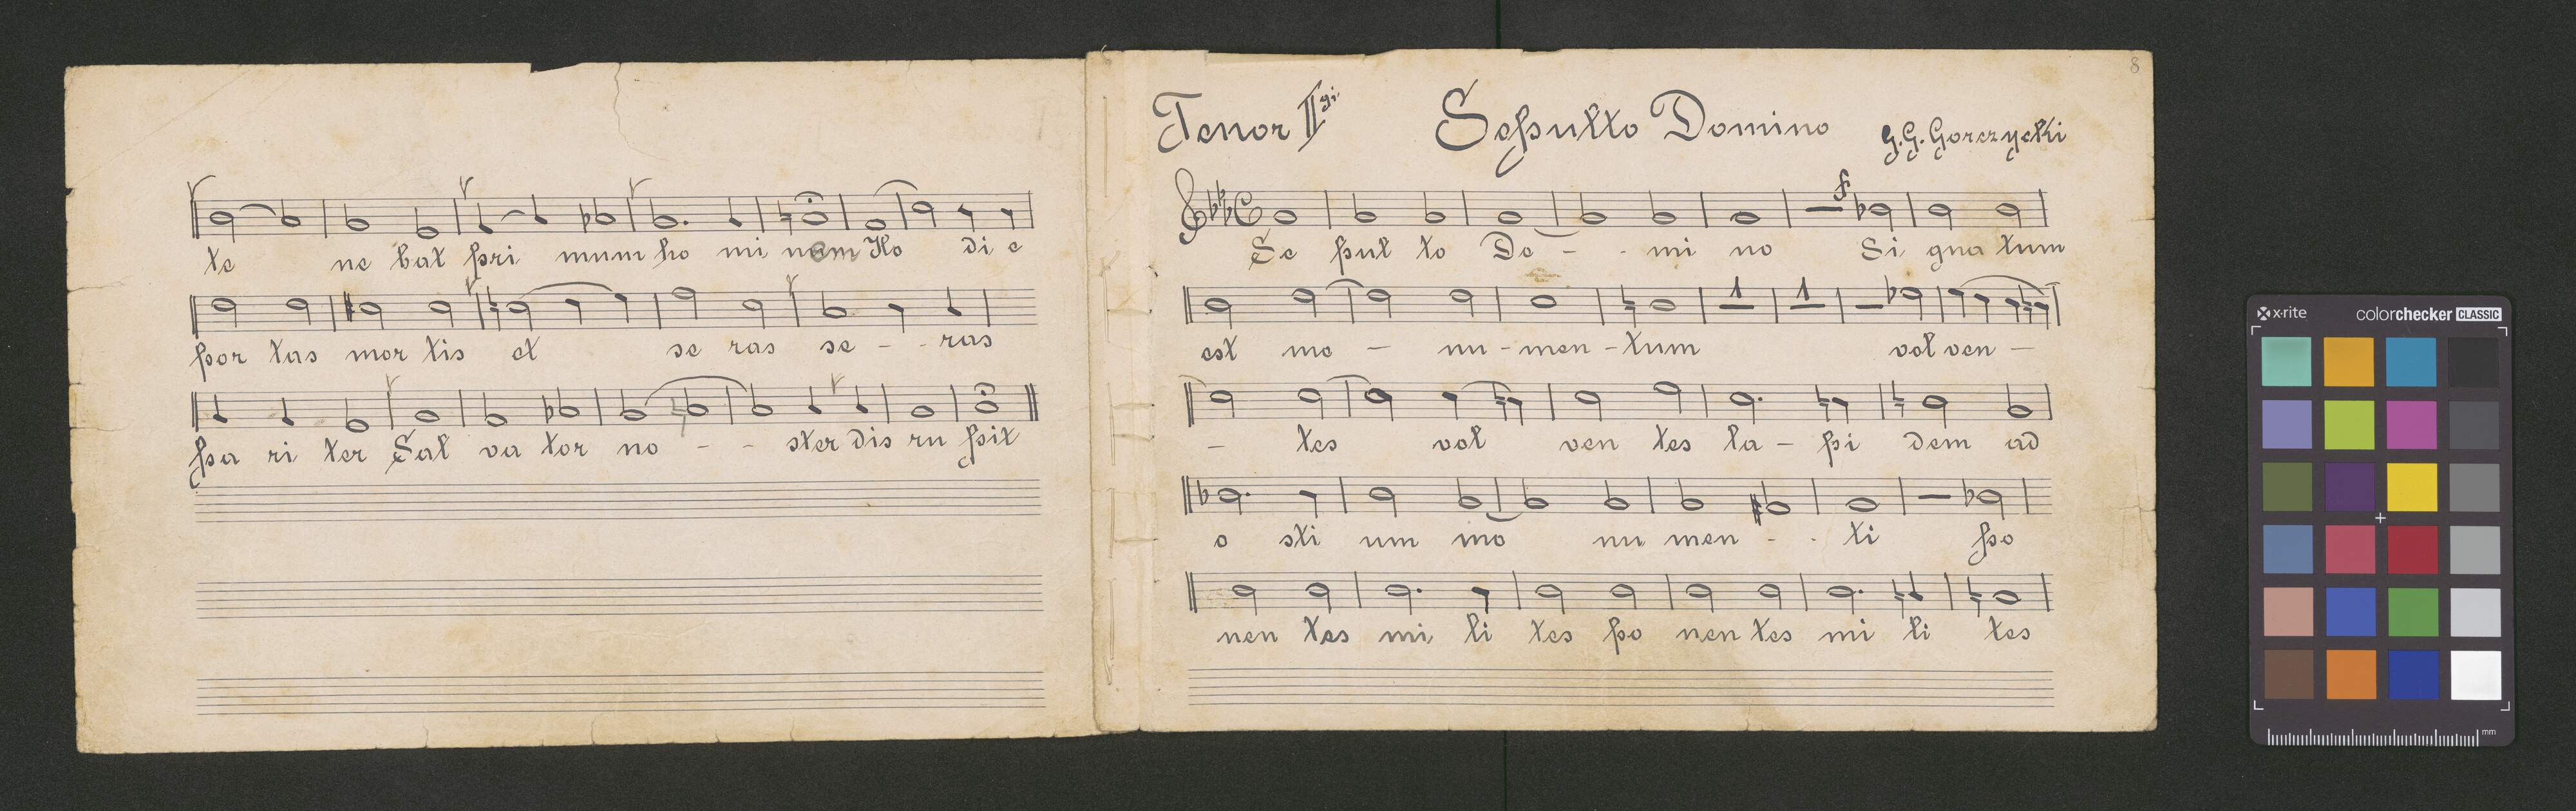 te ne bat pri mum ho mi nem Ho di e
por tas mor tis et se ras se - - ras
pa ri ter Sal va tor no - - ster dis ru pit
8
Tenor II gi. Sepulto Domino G.G. Gorczycki
f
Se pul to Do - - mi no Si gna tum
1 1
est mo - nu - men - tum vol ven -
- tes vol ven tes la - pi dem ad
o sti um mo nu men - - ti po
nen tes mi li tes po nen tes mi li tes
x-rite colorchecker CLASSIC
mm